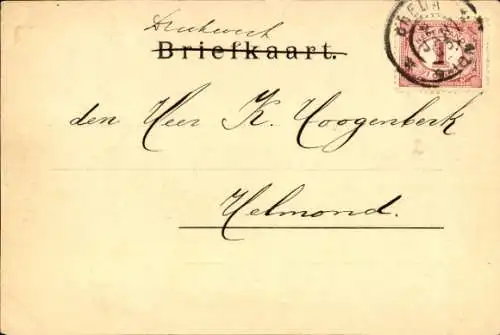 Drukwerk
Briefkaart.
BREDA
1
den Heer K. Hoogenberk
Helmond.